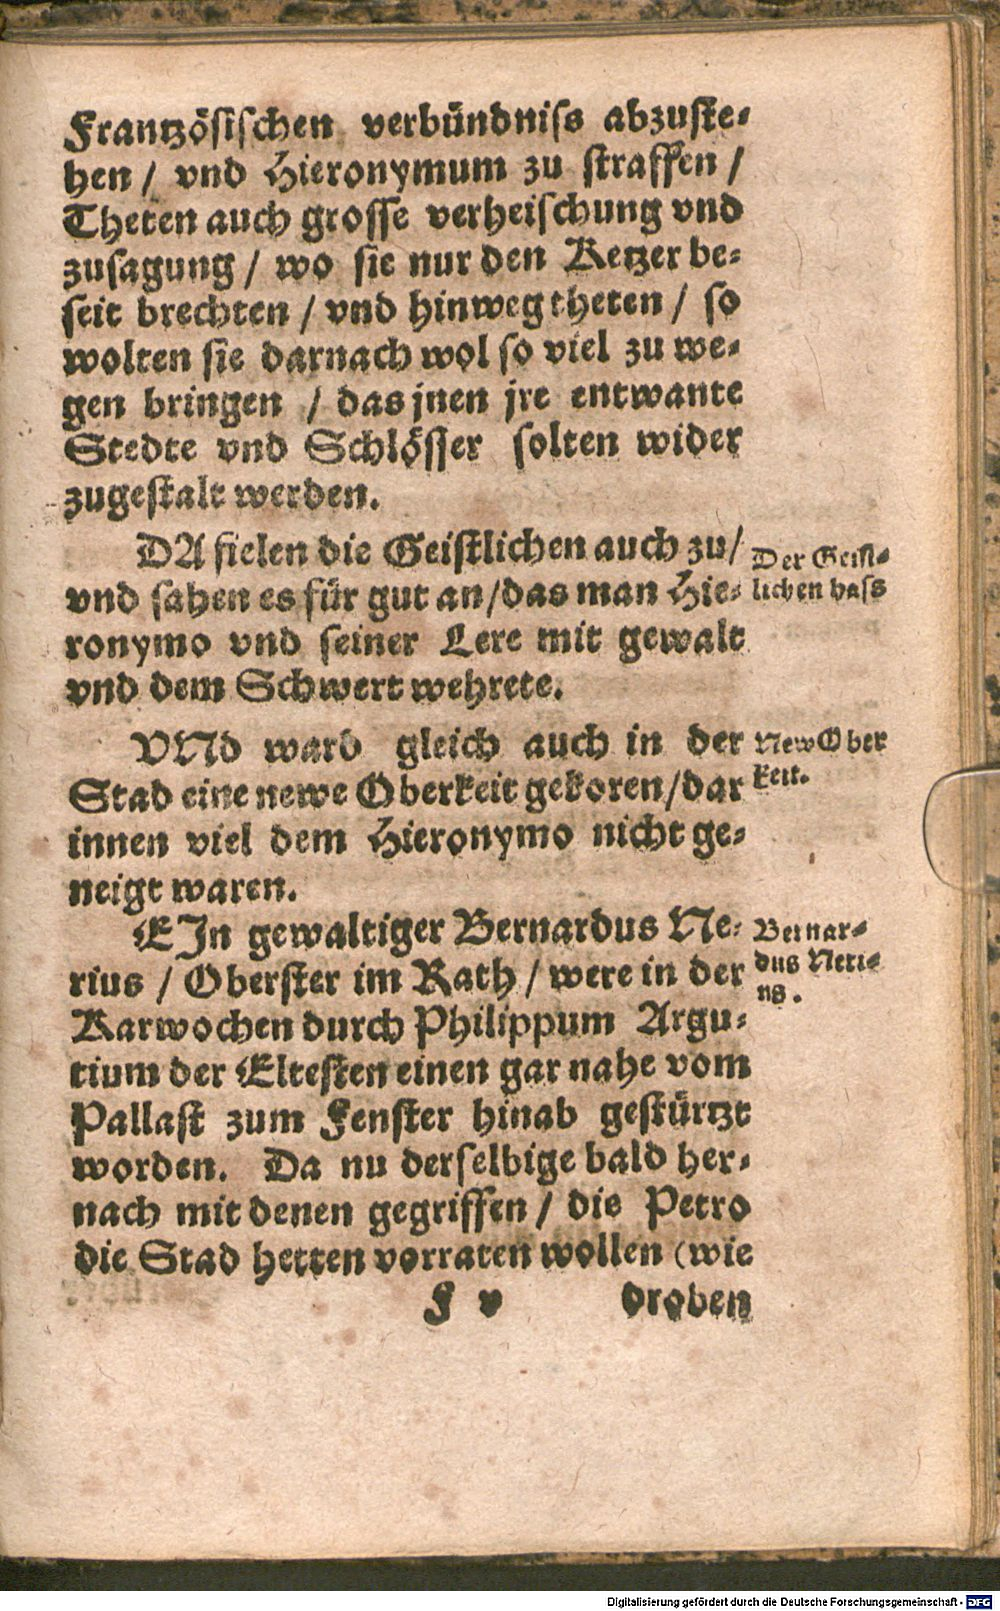 Frantzösischen verbündniss abzuste-
hen / vnd Hieronymum zu straffen /
Theten auch grosse verheischung vnd
zusagung / wo sie nur den Ketzer be-
seit brechten / vnd hinweg theten / so
wolten sie darnach wol so viel zu we-
gen bringen / das jnen jre entwante
Stedte vnd Schlösser solten wider
zugestalt werden.
DA fielen die Geistlichen auch zu /
vnd sahen es für gut an / das man Hie-
ronymo vnd seiner Lere mit gewalt
vnd dem Schwert wehrete.
Der Geist-
lichen hass
VNd ward gleich auch in der
Stad eine newe Oberkeit gekoren / dar
innen viel dem Hieronymo nicht ge-
neigt waren.
New Ober
keit.
EIn gewaltiger Bernardus Ne-
rius / Oberster im Rath / were in der
Karwochen durch Philippum Argu-
tium der Eltesten einen gar nahe vom
Pallast zum Fenster hinab gestürtzt
worden. Da nu derselbige bald her-
nach mit denen gegriffen / die Petro
die Stad hetten vorraten wollen (wie
Bernar-
dus Neri-
us.
F v
droben
Digitalisierung gefördert durch die Deutsche Forschungsgemeinschaft - DFG